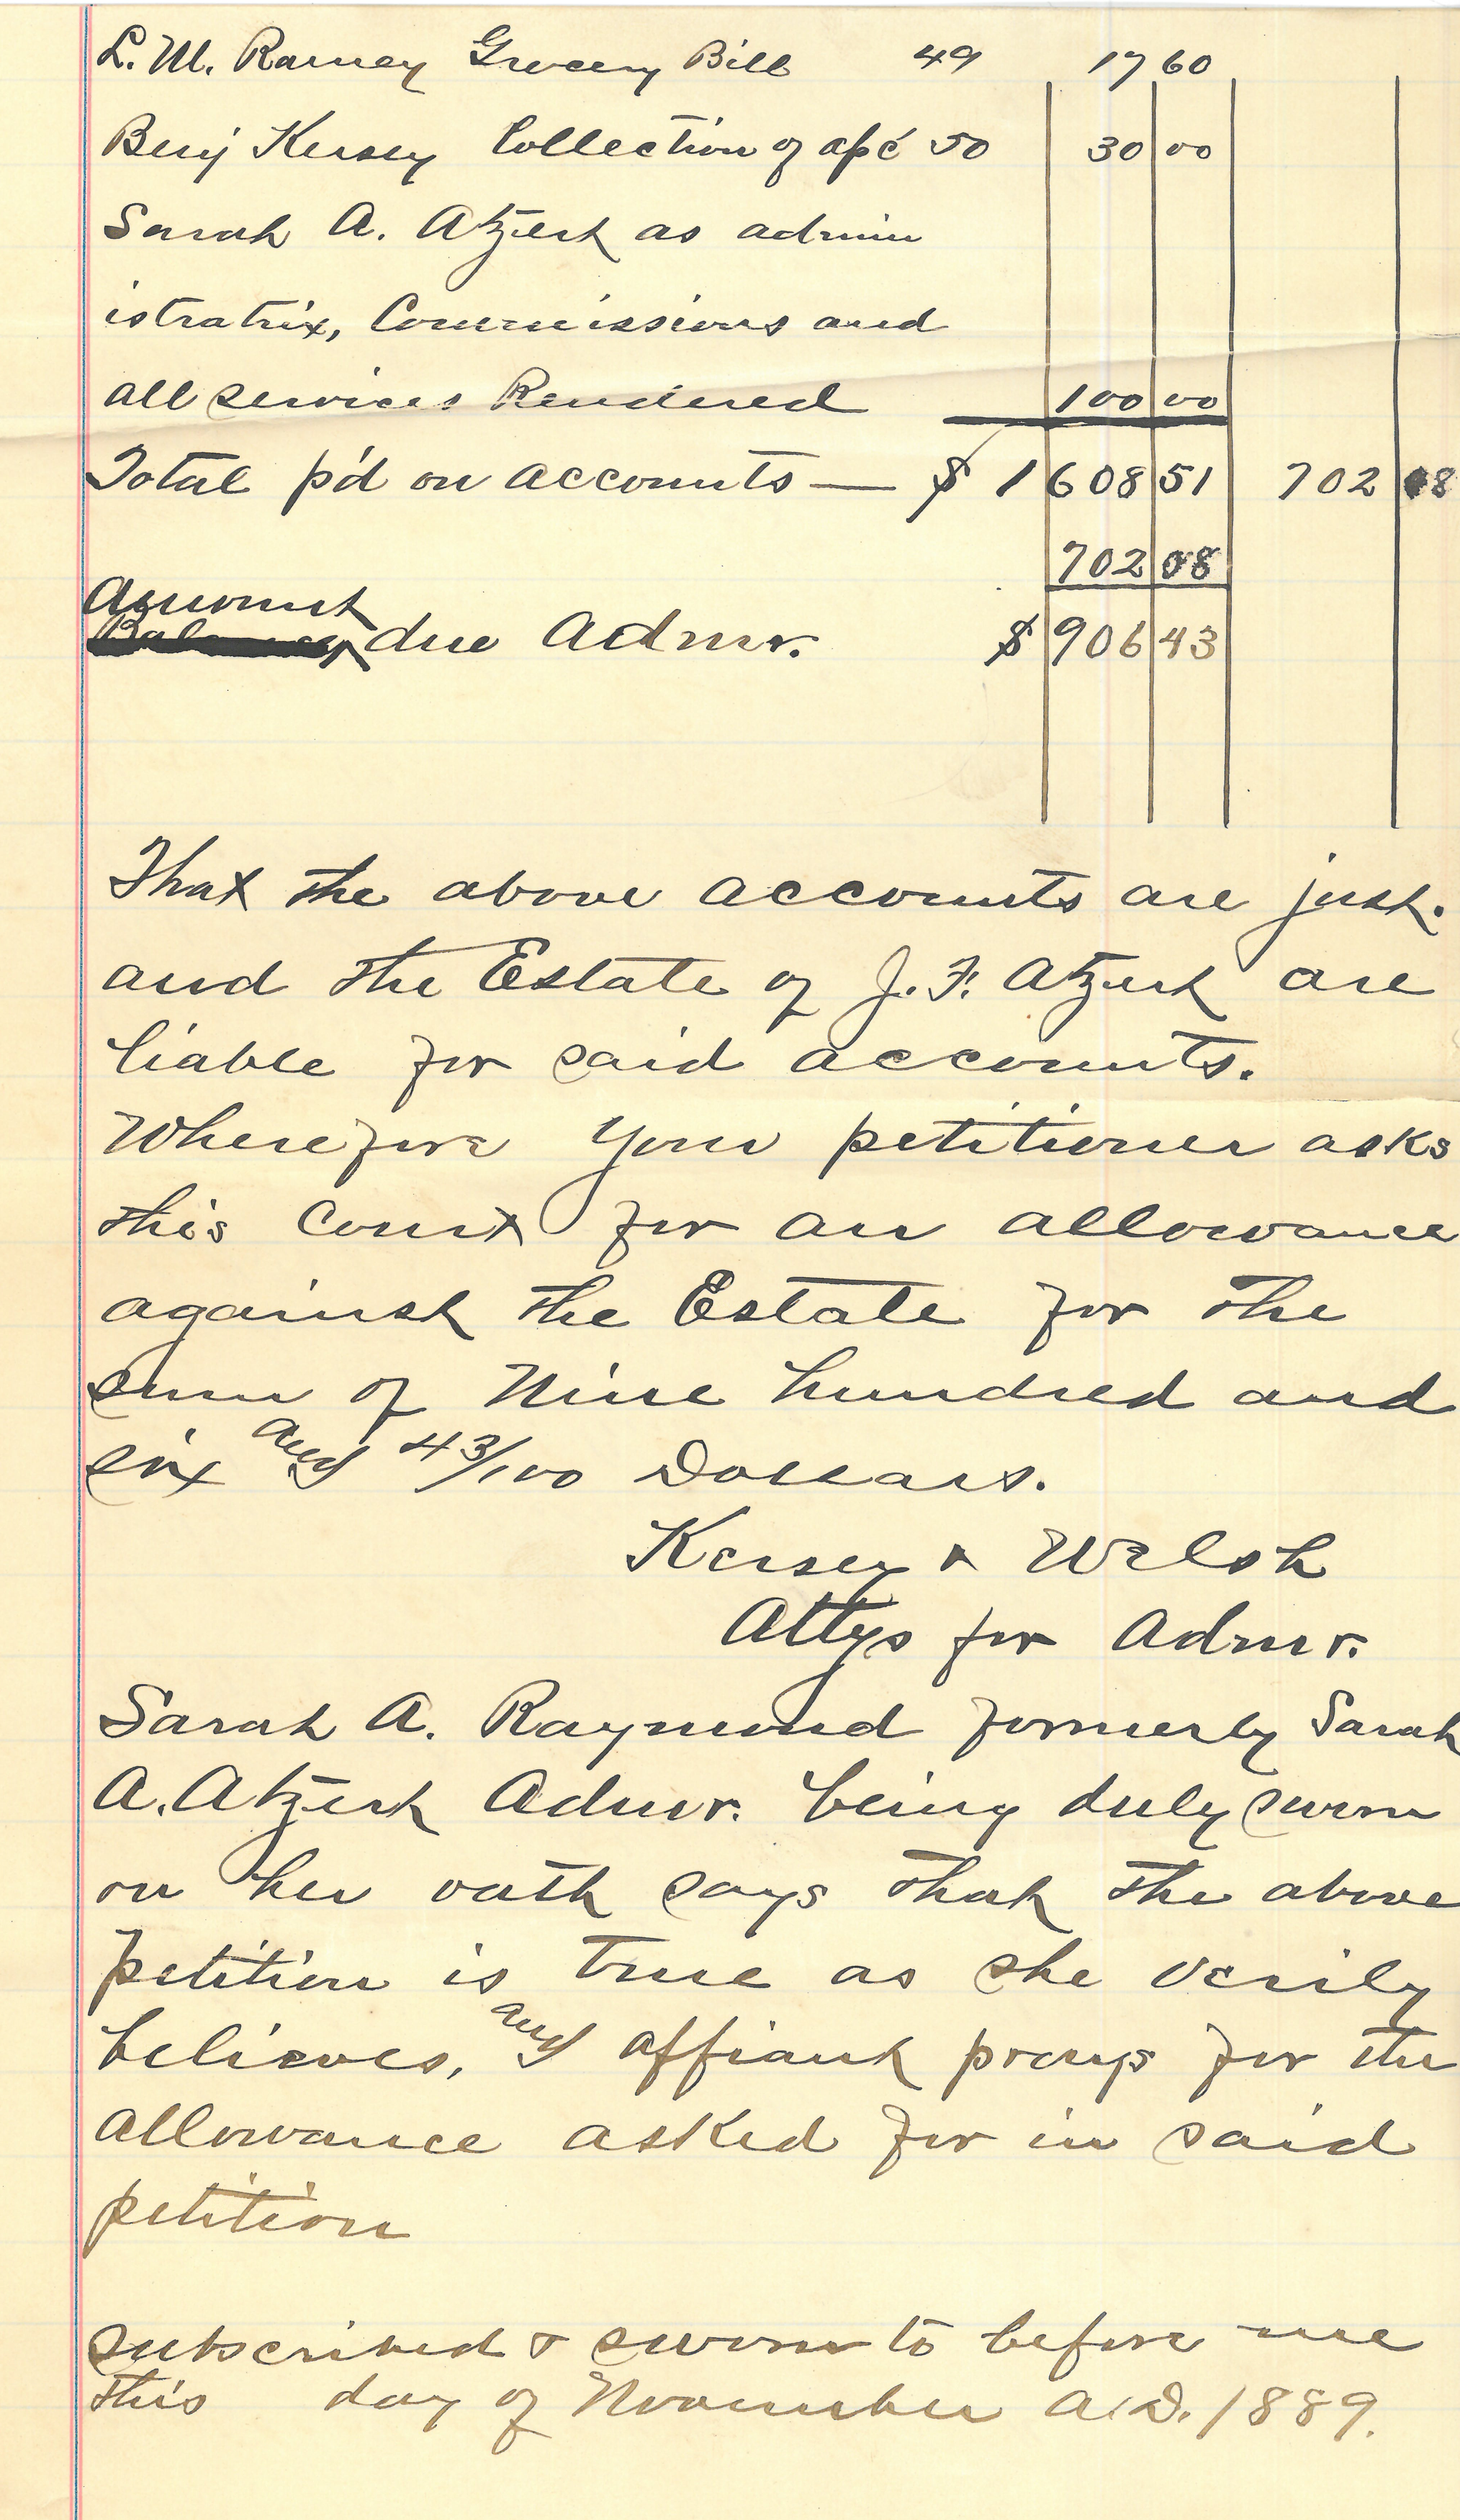 L. M. Ramey Grocery Bill 49 17 60
Benj Kersey Collection of a/c 50 30 00
Sarah A. Atzert as admin
istratrix, Commissions and
all services Rendered 100 00
Total p'd on accounts — $ 1 608 51 702 08
702 08
Amount
due Admr. $ 906 43
That the above accounts are just.
and the Estate of J. F. Atzert are
liable for said accounts.
Wherefore your petitioner asks
this Court for an allowance
against the Estate for the
sum of Nine hundred and
six and 43/100 Dollars.
Kersey & Welsh
Attys for Admr.
Sarah A. Raymond formerly Sarah
A. Atzert Admr. being duly sworn
on her oath says that the above
petition is true as she verily
believes, and affiant prays for the
allowance asked for in said
petition
subscribed & sworn to before me
this day of November A.D. 1889.